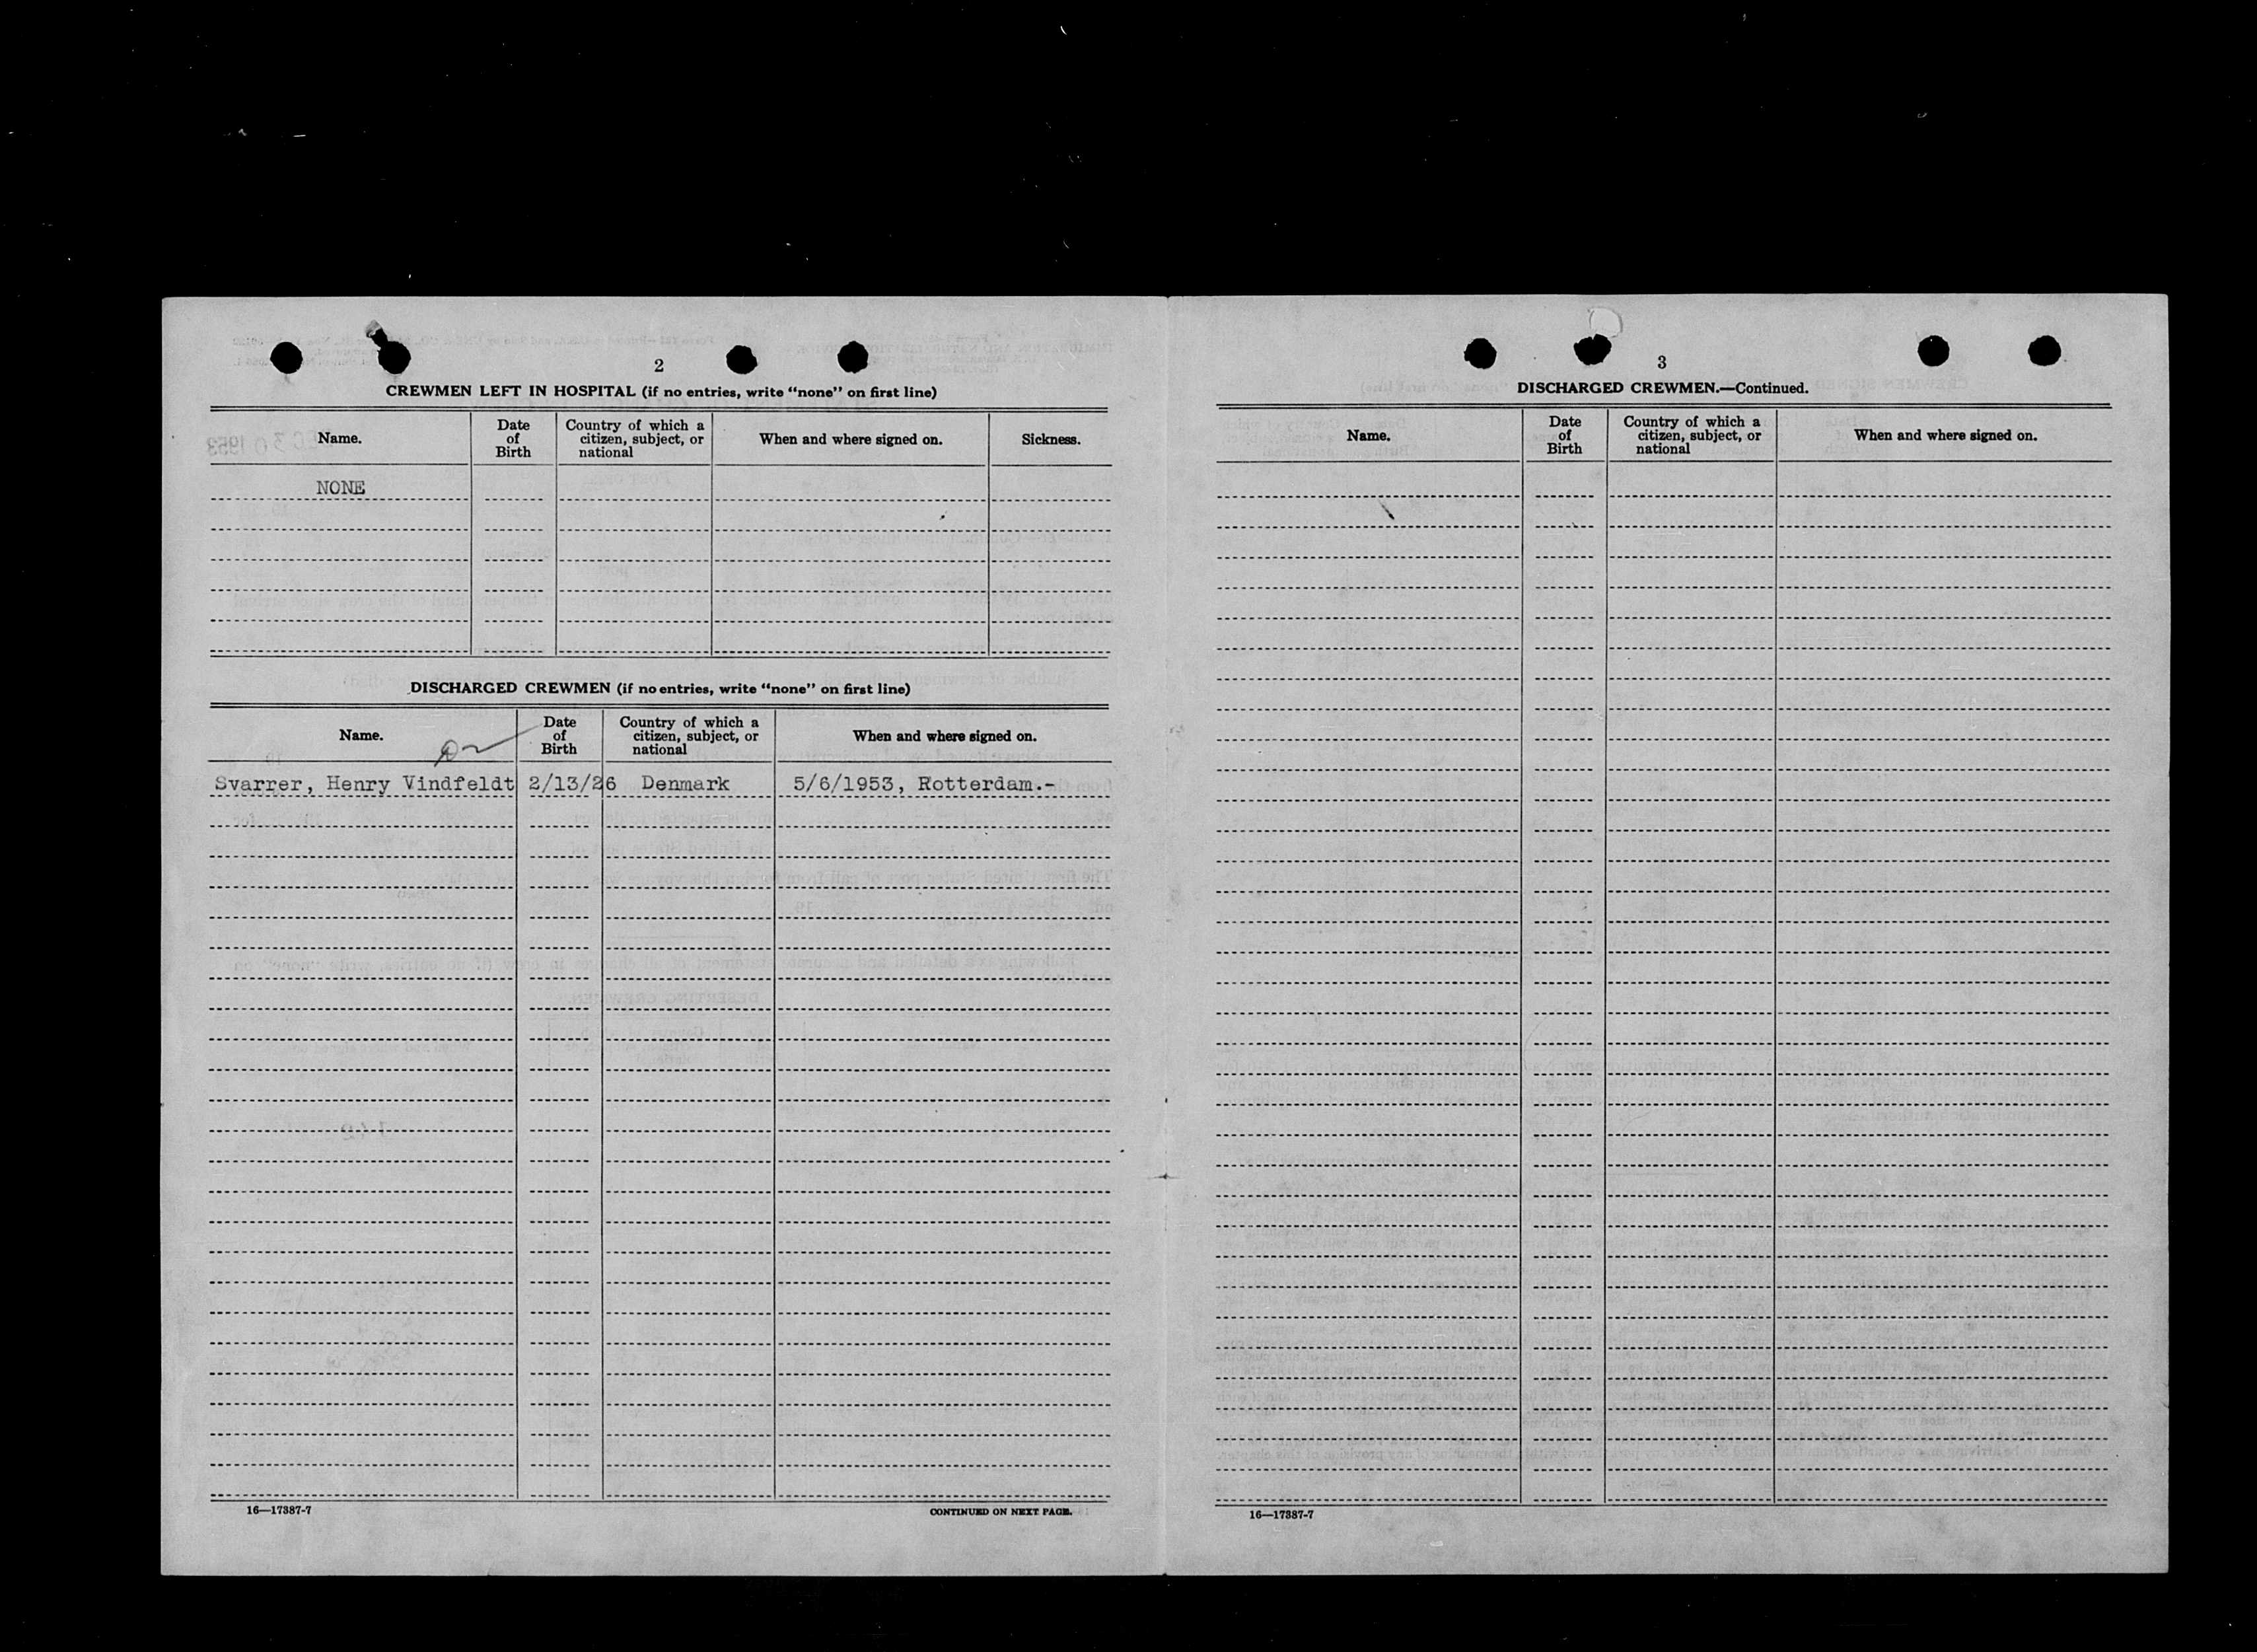 2
CREWMEN LEFT IN HOSPITAL (if no entries, write “none” on first line)
Name.
Date of Birth
Country of which a citizen, subject, or national
When and where signed on.
Sickness.
NONE
DISCHARGED CREWMEN (if no entries, write “none” on first line)
Name.
Date of Birth
Country of which a citizen, subject, or national
When and where signed on.
Svarrer, Henry Vindfeldt 2/13/26 Denmark 5/6/1953, Rotterdam.-
16—17387-7
CONTINUED ON NEXT PAGE.
3
DISCHARGED CREWMEN.—Continued.
Name.
Date of Birth
Country of which a citizen, subject, or national
When and where signed on.
16—17387-7